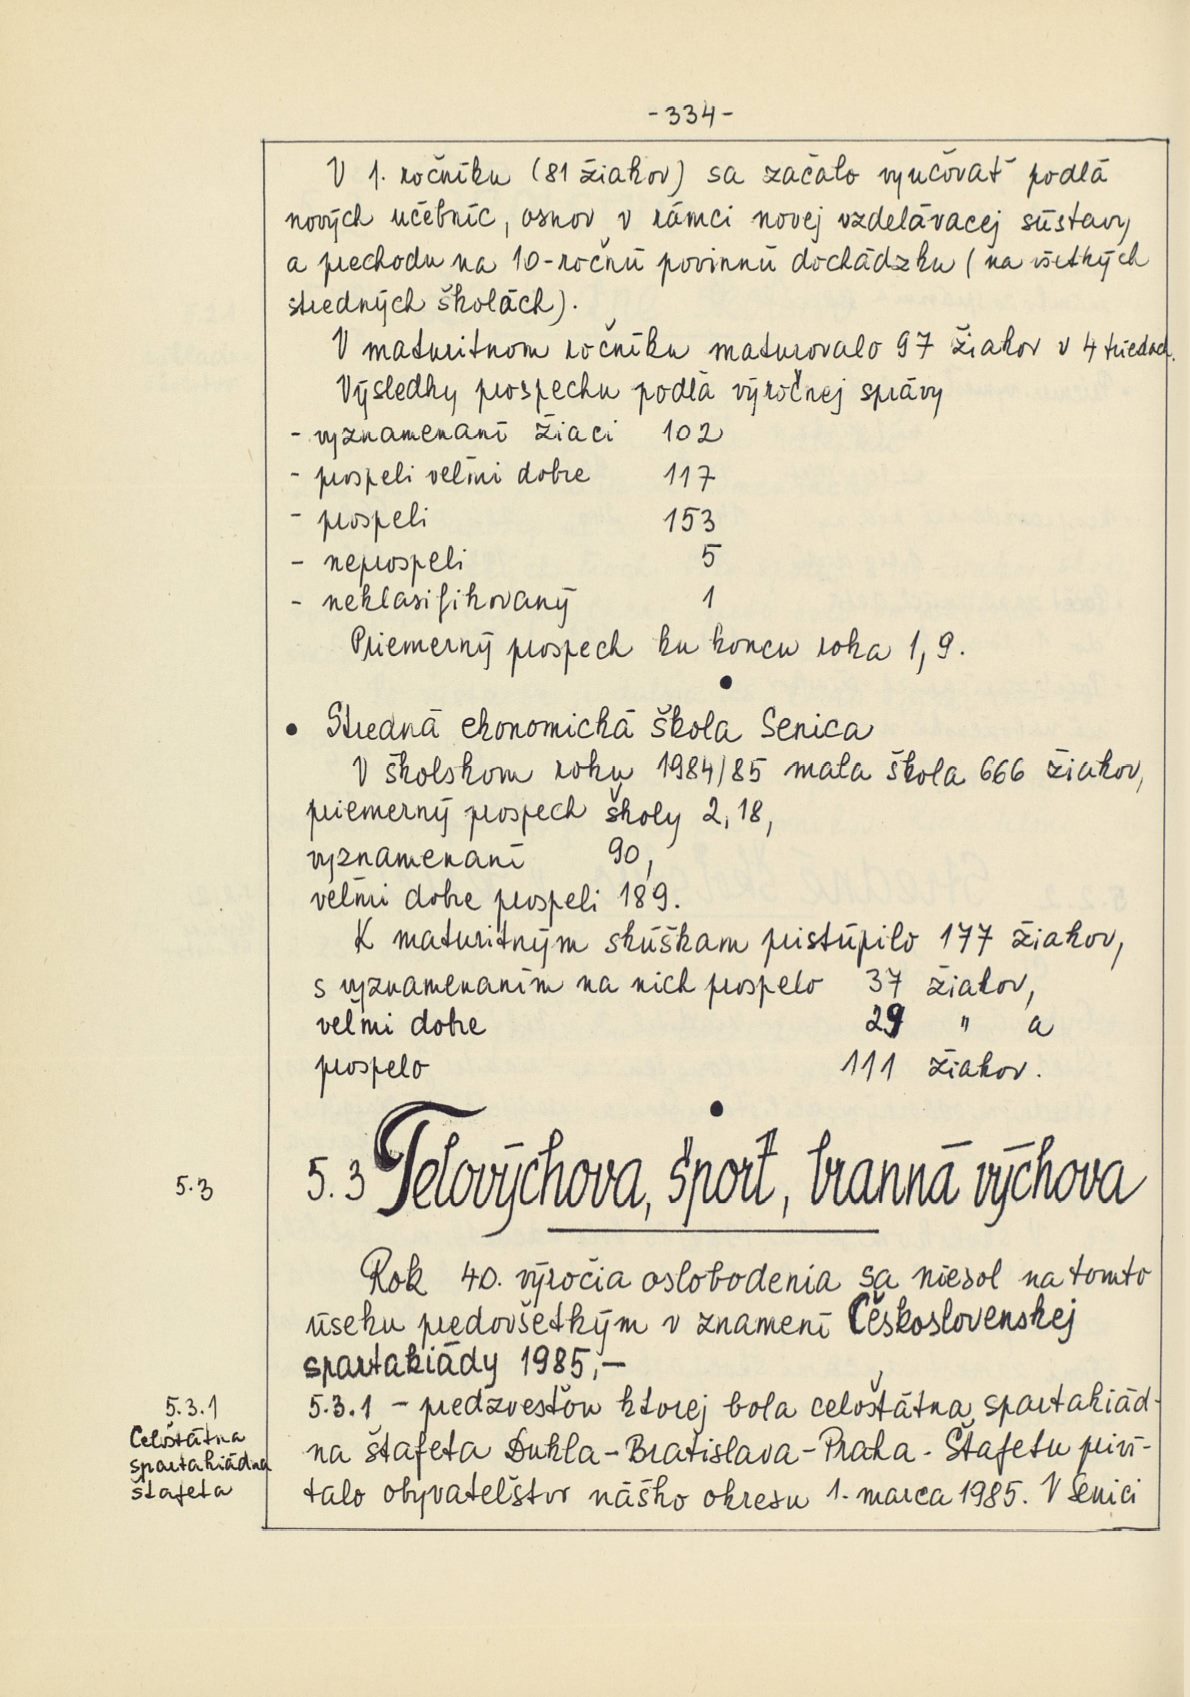 -334-
V 1. ročníku (81 žiakov) sa začalo vyučovať podľa
nových učebníc, osnov v rámci novej vzdelávacej sústavy
a prechodu na 10-ročnú povinnú dochádzku (na všetkých
stredných školách).
V maturitnom ročníku maturovalo 97 žiakov v 4 triedach.
Výsledky prospechu podľa výročnej správy
- vyznamenaní žiaci 102
- prospeli veľmi dobre 117
- prospeli 153
- neprospeli 5
- neklasifikovaný 1
Priemerný prospech ku koncu roka 1,9.
• Stredná ekonomická škola Senica
V školskom roku 1984/85 mala škola 666 žiakov,
priemerný prospech školy 2,18,
vyznamenaní 90,
veľmi dobre prospeli 189.
K maturitným skúškam pristúpilo 177 žiakov,
s vyznamenaním na nich prospelo 37 žiakov,
veľmi dobre 29 " a
prospelo 111 žiakov.
5.3
5.3 Telovýchova, šport, branná výchova
Rok 40. výročia oslobodenia sa niesol na tomto
úseku predovšetkým v znamení Československej
spartakiády 1985,-
5.3.1
Celoštátna
spartakiádna
štafeta
5.3.1 - predzvesťou ktorej bola celoštátna spartakiád-
na štafeta Dukla-Bratislava-Praha. Štafetu priví-
talo obyvateľstvo nášho okresu 1. marca 1985. V Senici